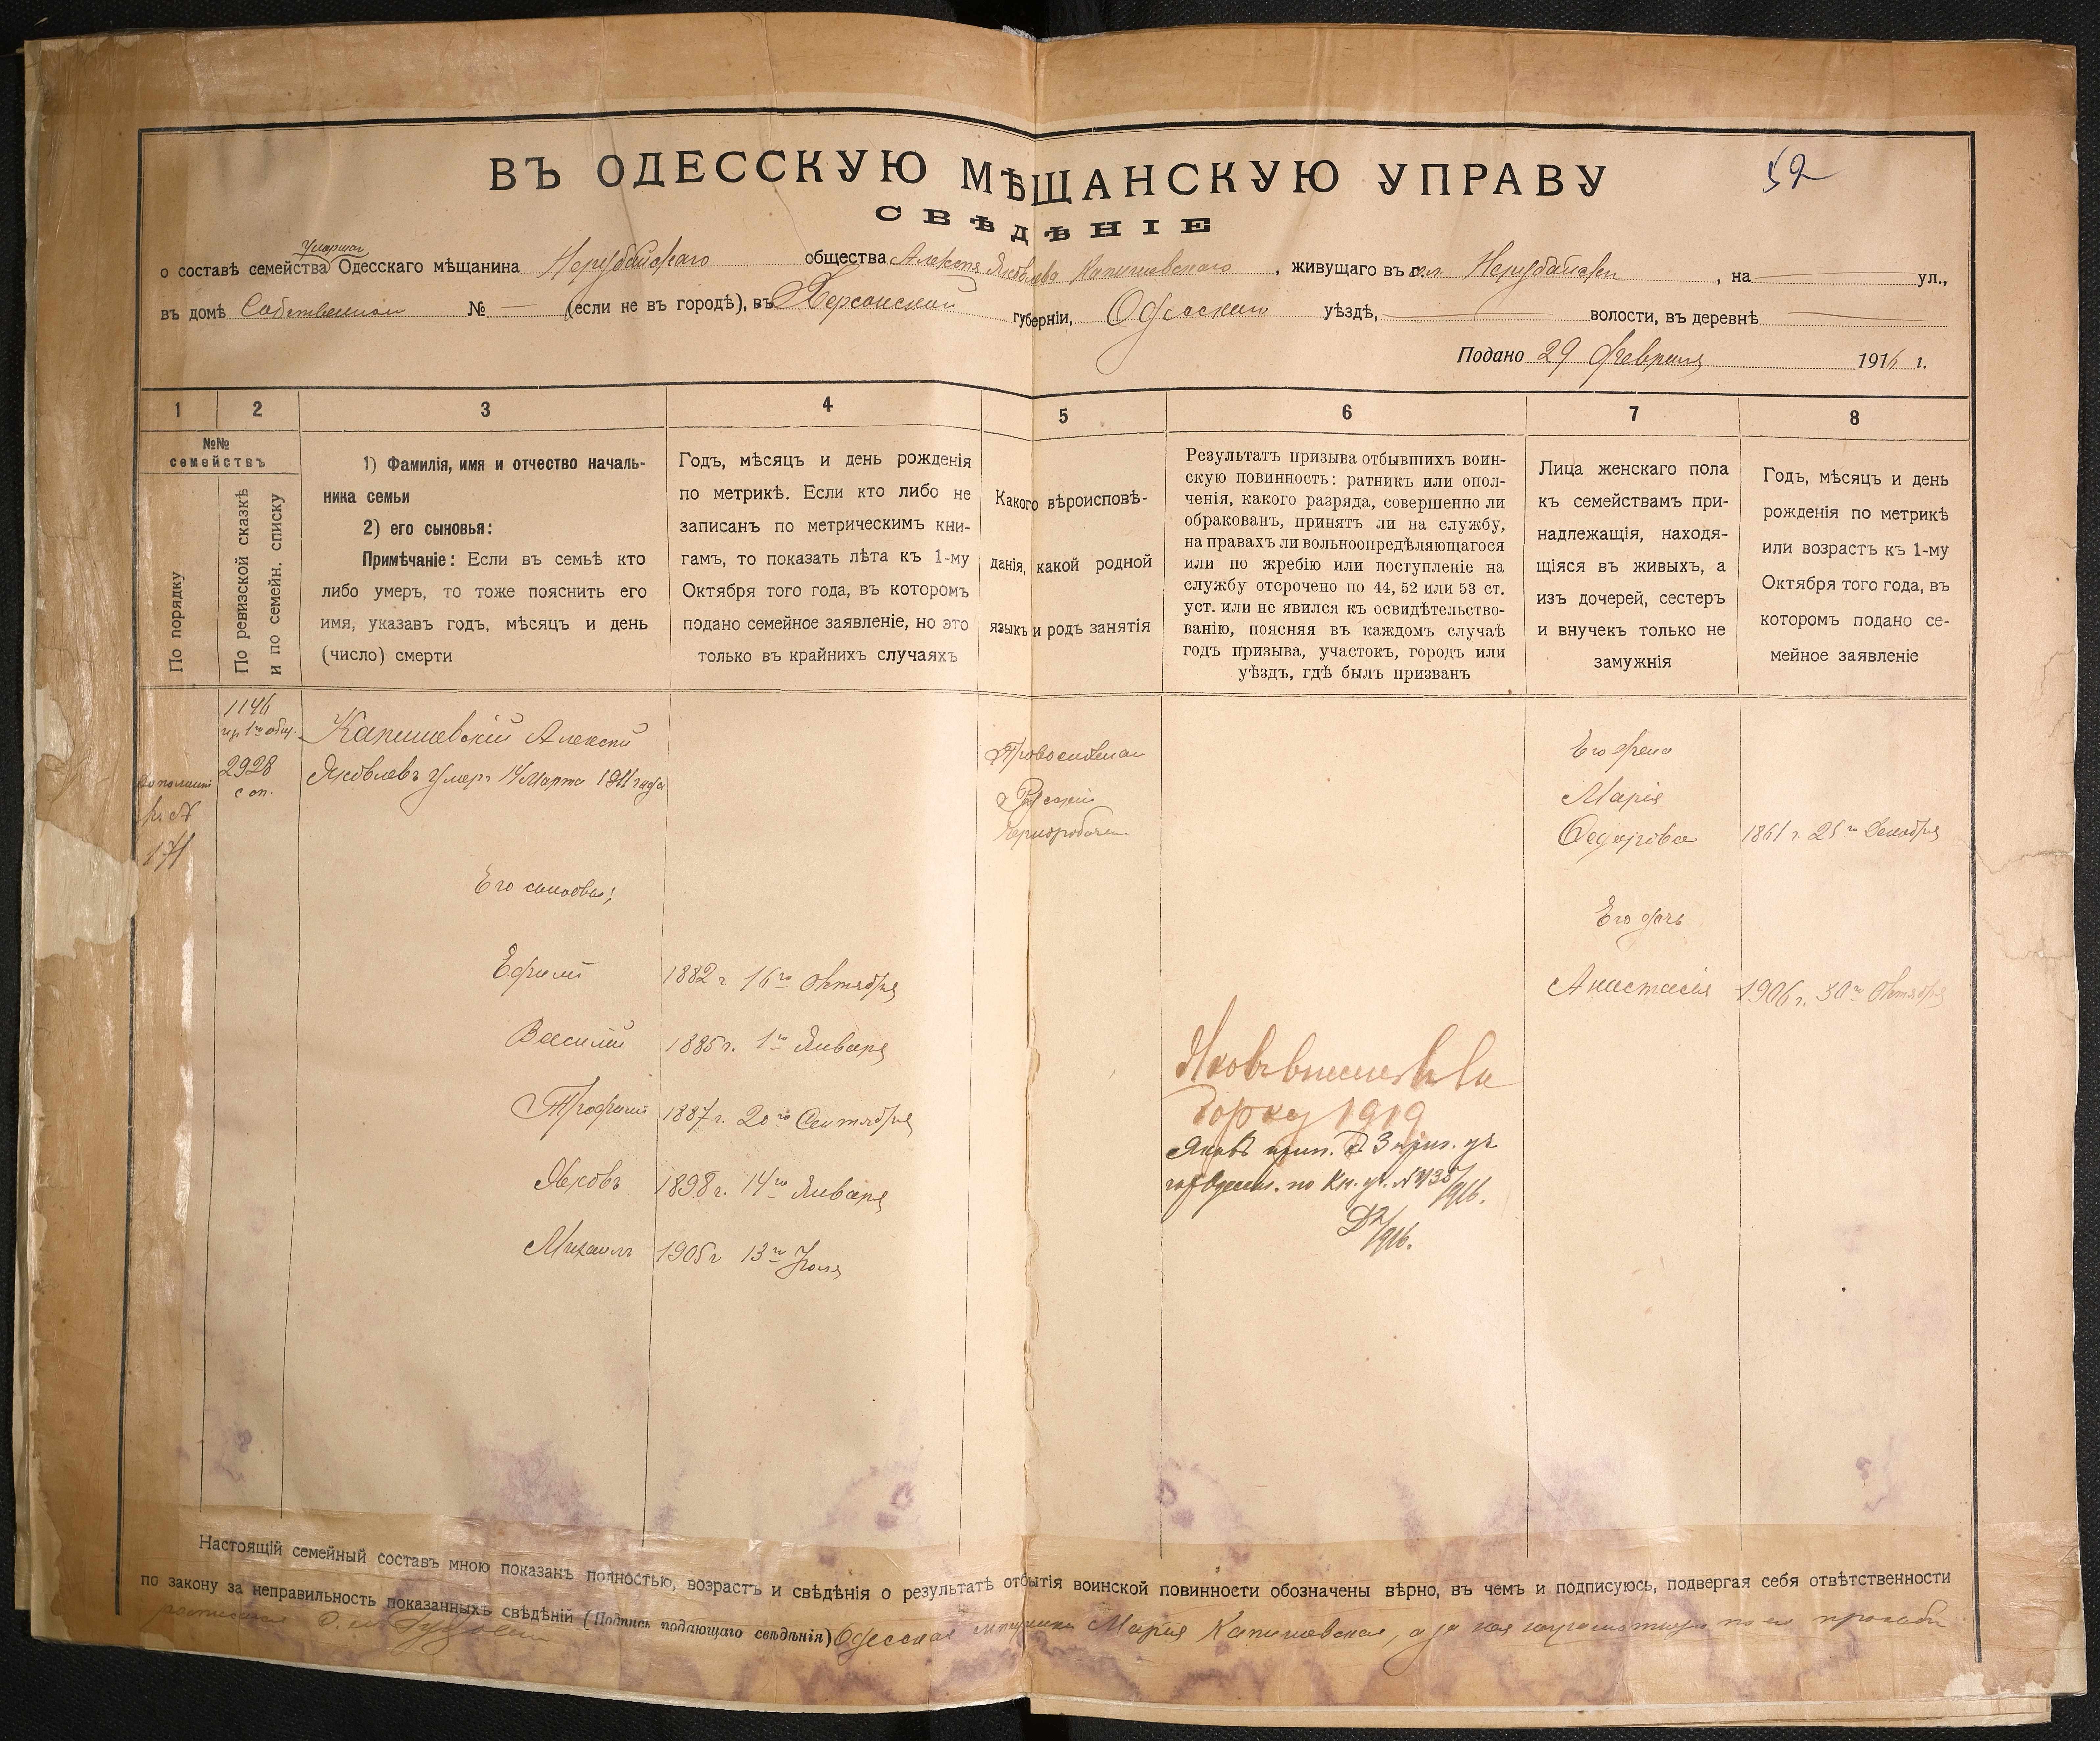 ВЪ ОДЕССКУЮ МѢЩАНСКУЮ УПРАВУ
52
СВѢДѢНІЕ
Умершаго
о составѣ семейства Одесскаго мѣщанина Нерубайскаго общества Алексѣя Яковлева Капишевскаго, живущаго въ сел. Нерубайскы, на — ул.,
въ домѣ Собственном № — (если не въ городѣ), въ Херсонской губерніи, Одесскаго уѣздѣ, — волости, въ деревнѣ —
Подано 29 Февраля 1916 г.
1 2 3 4 5 6 7 8
№№ семействъ
По порядку
По ревизской сказкѣ и по семейн. списку
1) Фамилія, имя и отчество началь-
ника семьи
2) его сыновья:
Примѣчаніе: Если въ семьѣ кто
либо умеръ, то тоже пояснить его
имя, указавъ годъ, мѣсяцъ и день
(число) смерти
Годъ, мѣсяцъ и день рожденія
по метрикѣ. Если кто либо не
записанъ по метрическимъ кни-
гамъ, то показать лѣта къ 1-му
Октября того года, въ которомъ
подано семейное заявленіе, но это
только въ крайнихъ случаяхъ
Какого вѣроисповѣ-
данія, какой родной
языкъ и родъ занятія
Результатъ призыва отбывшихъ воин-
скую повинность: ратникъ или опол-
ченія, какого разряда, совершенно ли
обракованъ, принятъ ли на службу,
на правахъ ли вольноопредѣляющагося
или по жребію или поступленіе на
службу отсрочено по 44, 52 или 53 ст.
уст. или не явился къ освидѣтельство-
ванію, поясняя въ каждомъ случаѣ
годъ призыва, участокъ, городъ или
уѣздъ, гдѣ былъ призванъ
Лица женскаго пола
къ семействамъ при-
надлежащія, находя-
щіяся въ живыхъ, а
изъ дочерей, сестеръ
и внучекъ только не
замужнія
Годъ, мѣсяцъ и день
рожденія по метрикѣ
или возрастъ къ 1-му
Октября того года, въ
которомъ подано се-
мейное заявленіе
1146
2928
с оп.
къ №
171
Капишевскій Алексѣй
Яковлевъ умеръ 14 Марта 1911 года
Православнаго
Русскій
Чернорабочій
Его жена
Марія
Федорова 1861 г. 25го Декабря
Его сыновья:
Его дочь
Ефимъ 1882 г 16го Октября
Анастасія 1906 г. 30го Октября
Василій 1885 г. 1го Января
Трофимъ 1887 г. 20го Сентября
Яковъ 1898 г. 14го Января
Михаилъ 1905 г 13го Іюля
Яковъ внесенъ въ
1919
Яковъ прип. къ 3 приз. уч.
1916.
1916.
Настоящій семейный составъ мною показанъ полностью, возрастъ и свѣдѣнія о результатѣ отбытія воинской повинности обозначены вѣрно, въ чемъ и подписуюсь, подвергая себя отвѣтственности
по закону за неправильность показанныхъ свѣдѣній (Подпись подающаго свѣдѣнія) Одесская мѣщанка Марія Капишевская, а за нея неграмотную по ея просьбѣ
росписался